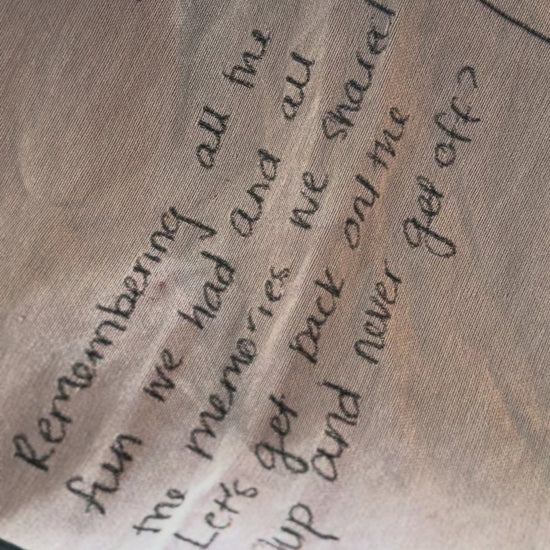 Remembering all the
fun we had and all
the memories we shared
Let's get back on the
up and never get off